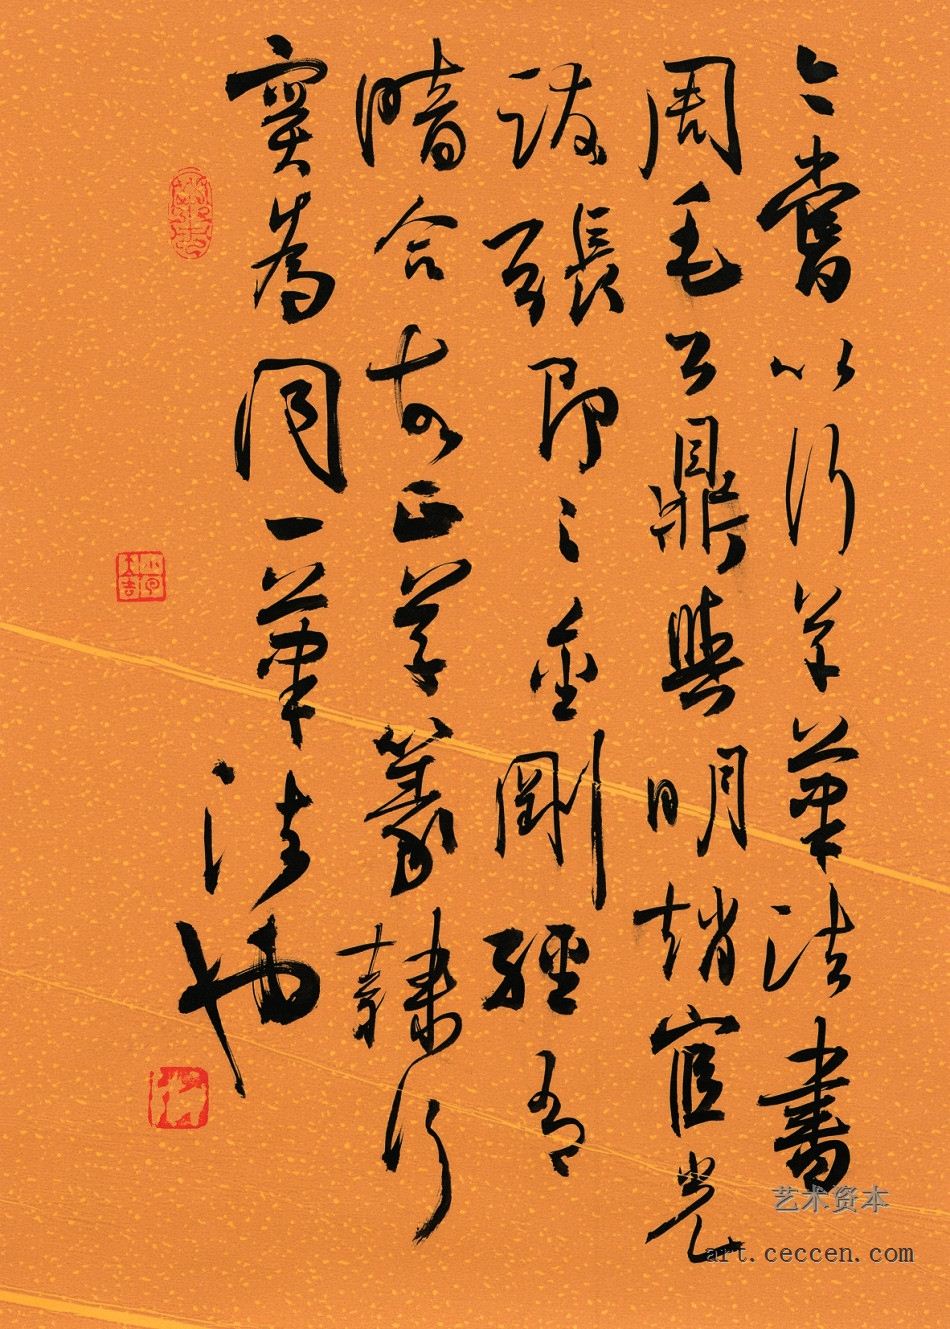 今嘗以行草筆法書
周毛公鼎與明趙宦光
跋張即之金剛經有
暗合故正草篆隸行
實為同一筆法也
艺术资本
art.ceccen.com